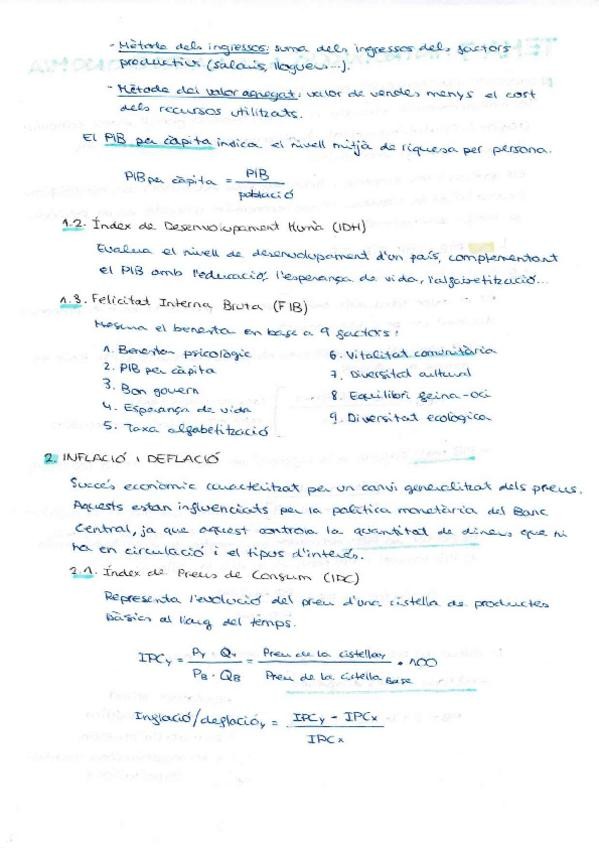 - Mètode dels ingressos: suma dels ingressos dels factors
productius (salaris, lloguers...).
- Mètode del valor agregat: valor de vendes menys el cost
dels recursos utilitzats.
El PIB per càpita indica el nivell mitjà de riquesa per persona.
PIB per càpita = PIB / població
1.2. Índex de Desenvolupament Humà (IDH)
Evalua el nivell de desenvolupament d'un país, complementant
el PIB amb l'educació, l'esperança de vida, l'alfabetització...
1.3. Felicitat Interna Bruta (FIB)
Mesura el benestar en base a 9 factors:
1. Benestar psicològic
2. PIB per càpita
3. Bon govern
4. Esperança de vida
5. Taxa alfabetització
6. Vitalitat comunitària
7. Diversitat cultural
8. Equilibri feina-oci
9. Diversitat ecològica
2. INFLACIÓ I DEFLACIÓ
Succés econòmic caracteritzat per un canvi generalitzat dels preus.
Aquests estan influenciats per la política monetària del Banc
Central, ja que aquest controla la quantitat de diners que hi
ha en circulació i el tipus d'interés.
2.1. Índex de Preus de Consum (IPC)
Representa l'evolució del preu d'una cistella de productes
bàsics al llarg del temps.
IPCy = Py · Qy / PB · QB = Preu de la cistellay / Preu de la cistella Base · 100
Inflació/deflacióy = IPCy - IPCx / IPCx